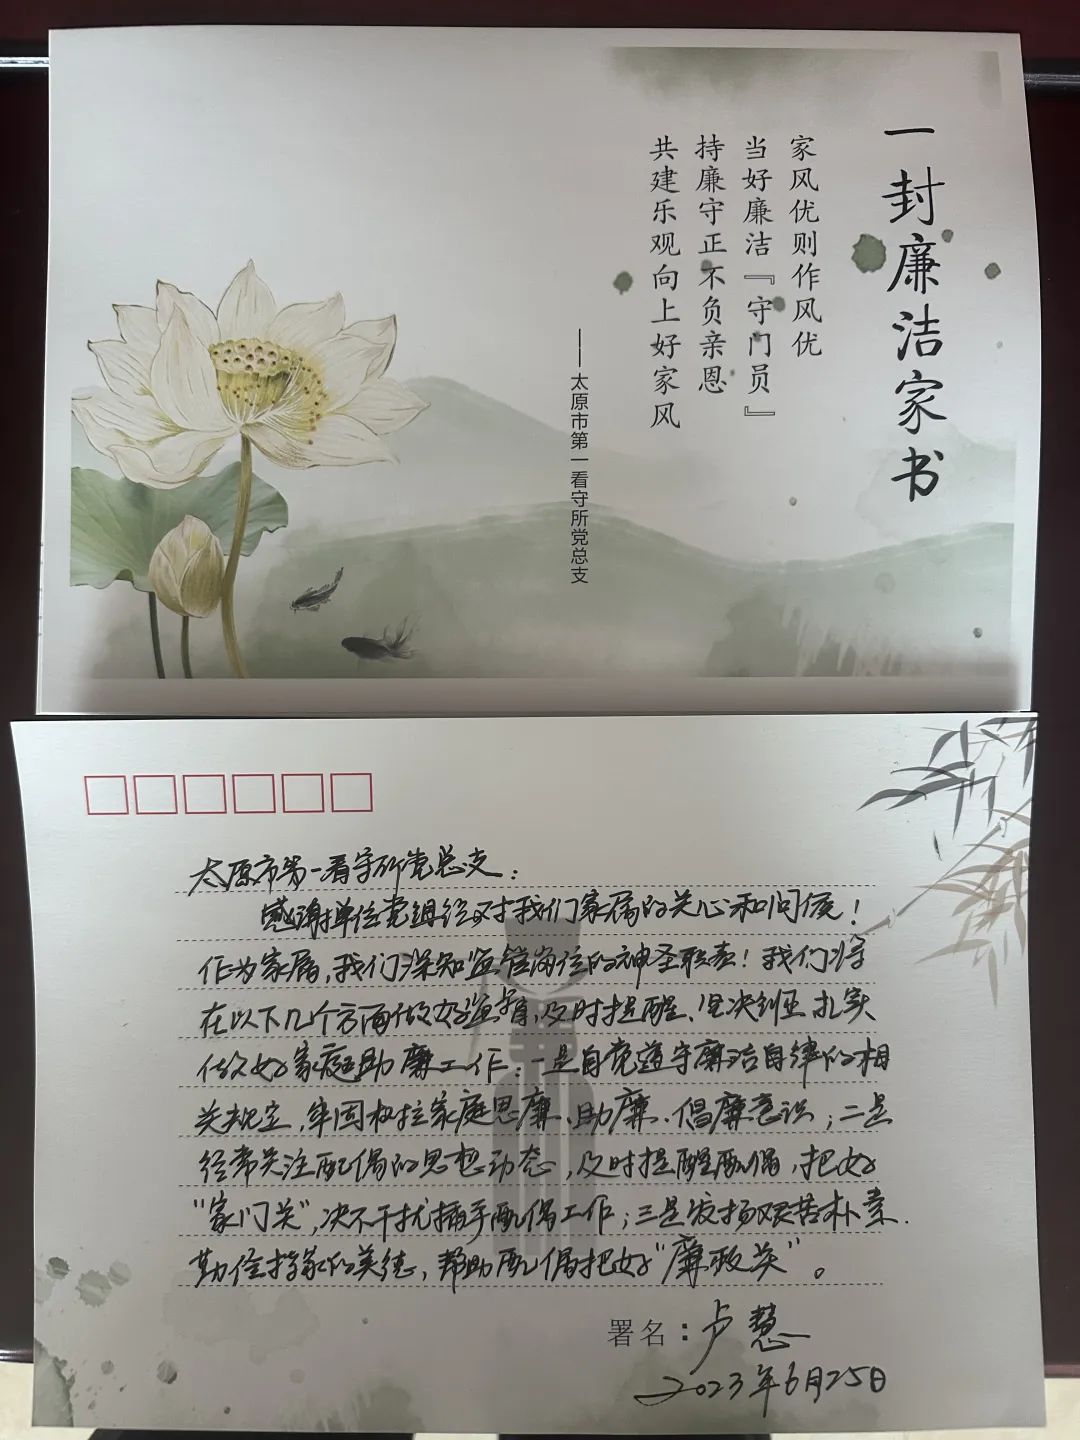 一封廉洁家书
家风优则作风优
当好廉洁『守门员』
持廉守正不负亲恩
共建乐观向上好家风
——太原市第一看守所党总支
太原市第一看守所党总支：
感谢单位党组织对我们家属的关心和问候！
作为家属，我们深知监管岗位的神圣职责！我们将
在以下几个方面做好监督，及时提醒、坚决纠正，扎实
做好家庭助廉工作：一是自觉遵守廉洁自律的相
关规定，牢固树立家庭思廉、助廉、倡廉意识；二是
经常关注配偶的思想动态，及时提醒配偶，把好
“家门关”，决不干扰插手配偶工作；三是发扬艰苦朴素、
勤俭持家的美德，帮助配偶把好“廉政关”。
署名：卢慧
2023年6月25日